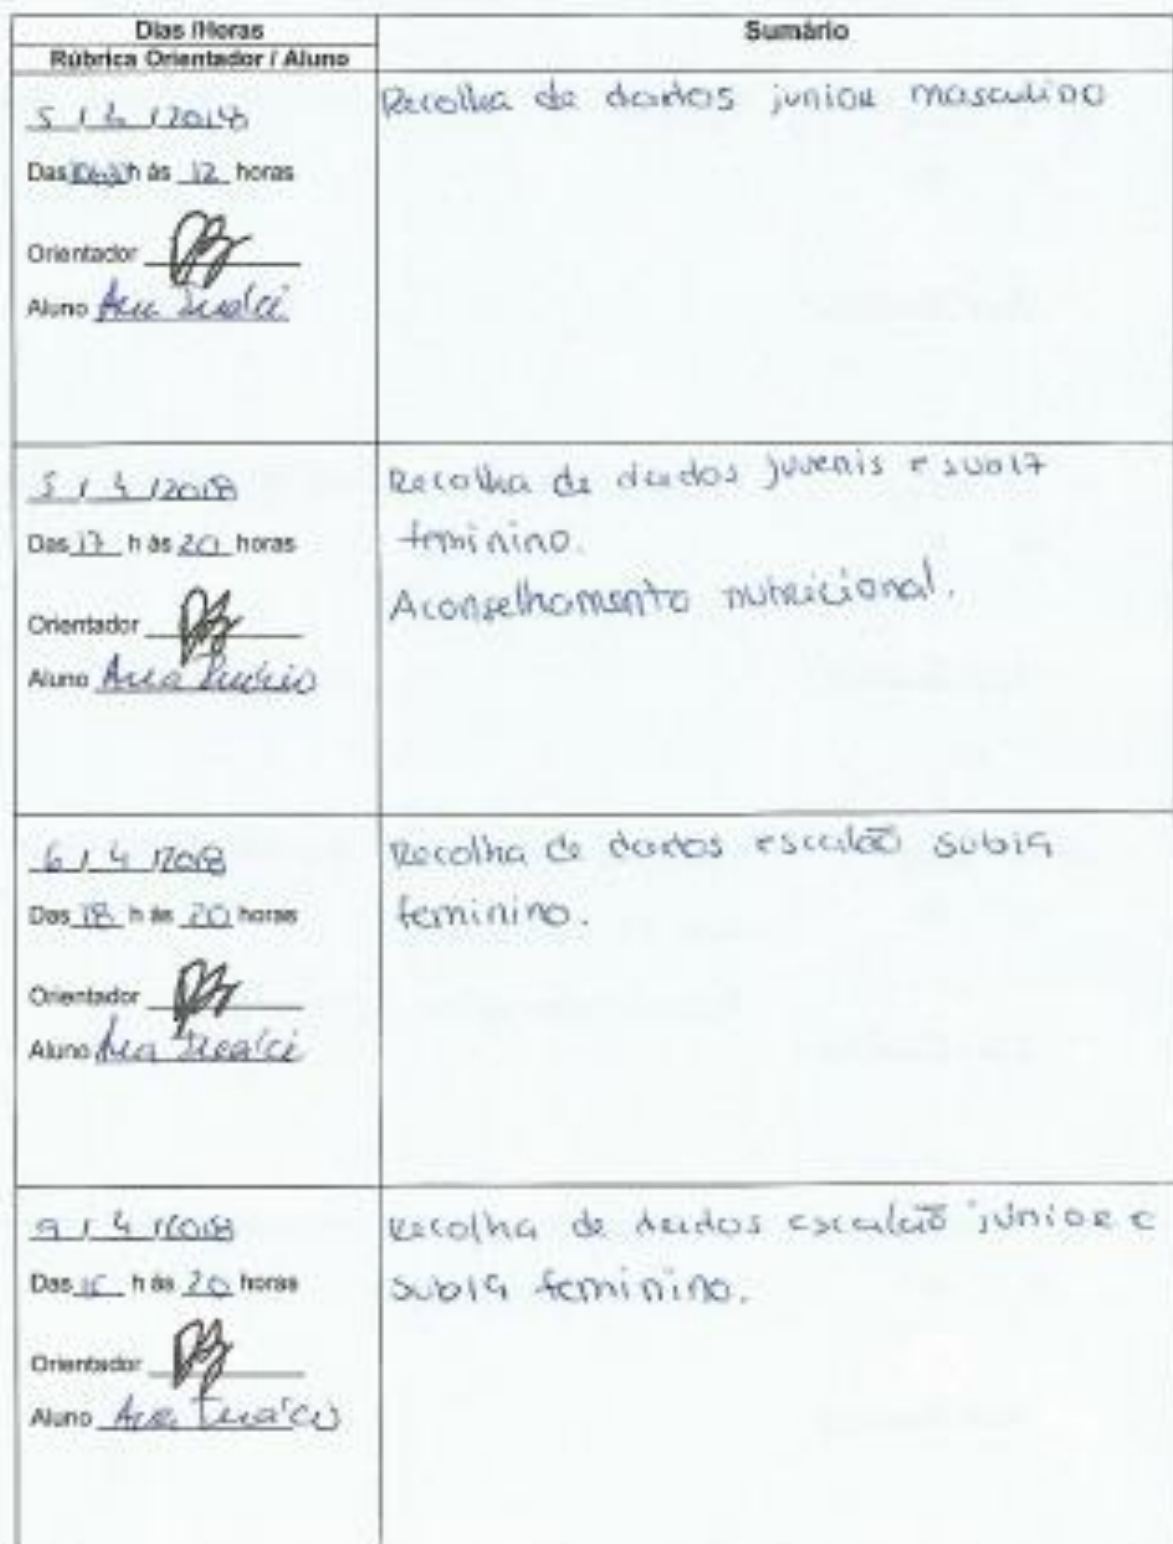 Dias /Horas
Rúbrica Orientador / Aluno
Sumário
5 / 4 / 2018
Das h ás 12 horas
Orientador
Aluno Ana
Recolha de dados junior masculino
5 / 4 / 2018
Das 17 h ás 20 horas
Orientador
Aluno Ana
Recolha de dados juvenis e sub17
feminino.
Aconselhamento nutricional.
6 / 4 / 2018
Das 18 h ás 20 horas
Orientador
Aluno Ana
Recolha de dados escalão sub19
feminino.
9 / 4 / 2018
Das h ás 20 horas
Orientador
Aluno Ana
Recolha de dados escalão júnior e
sub19 feminino.